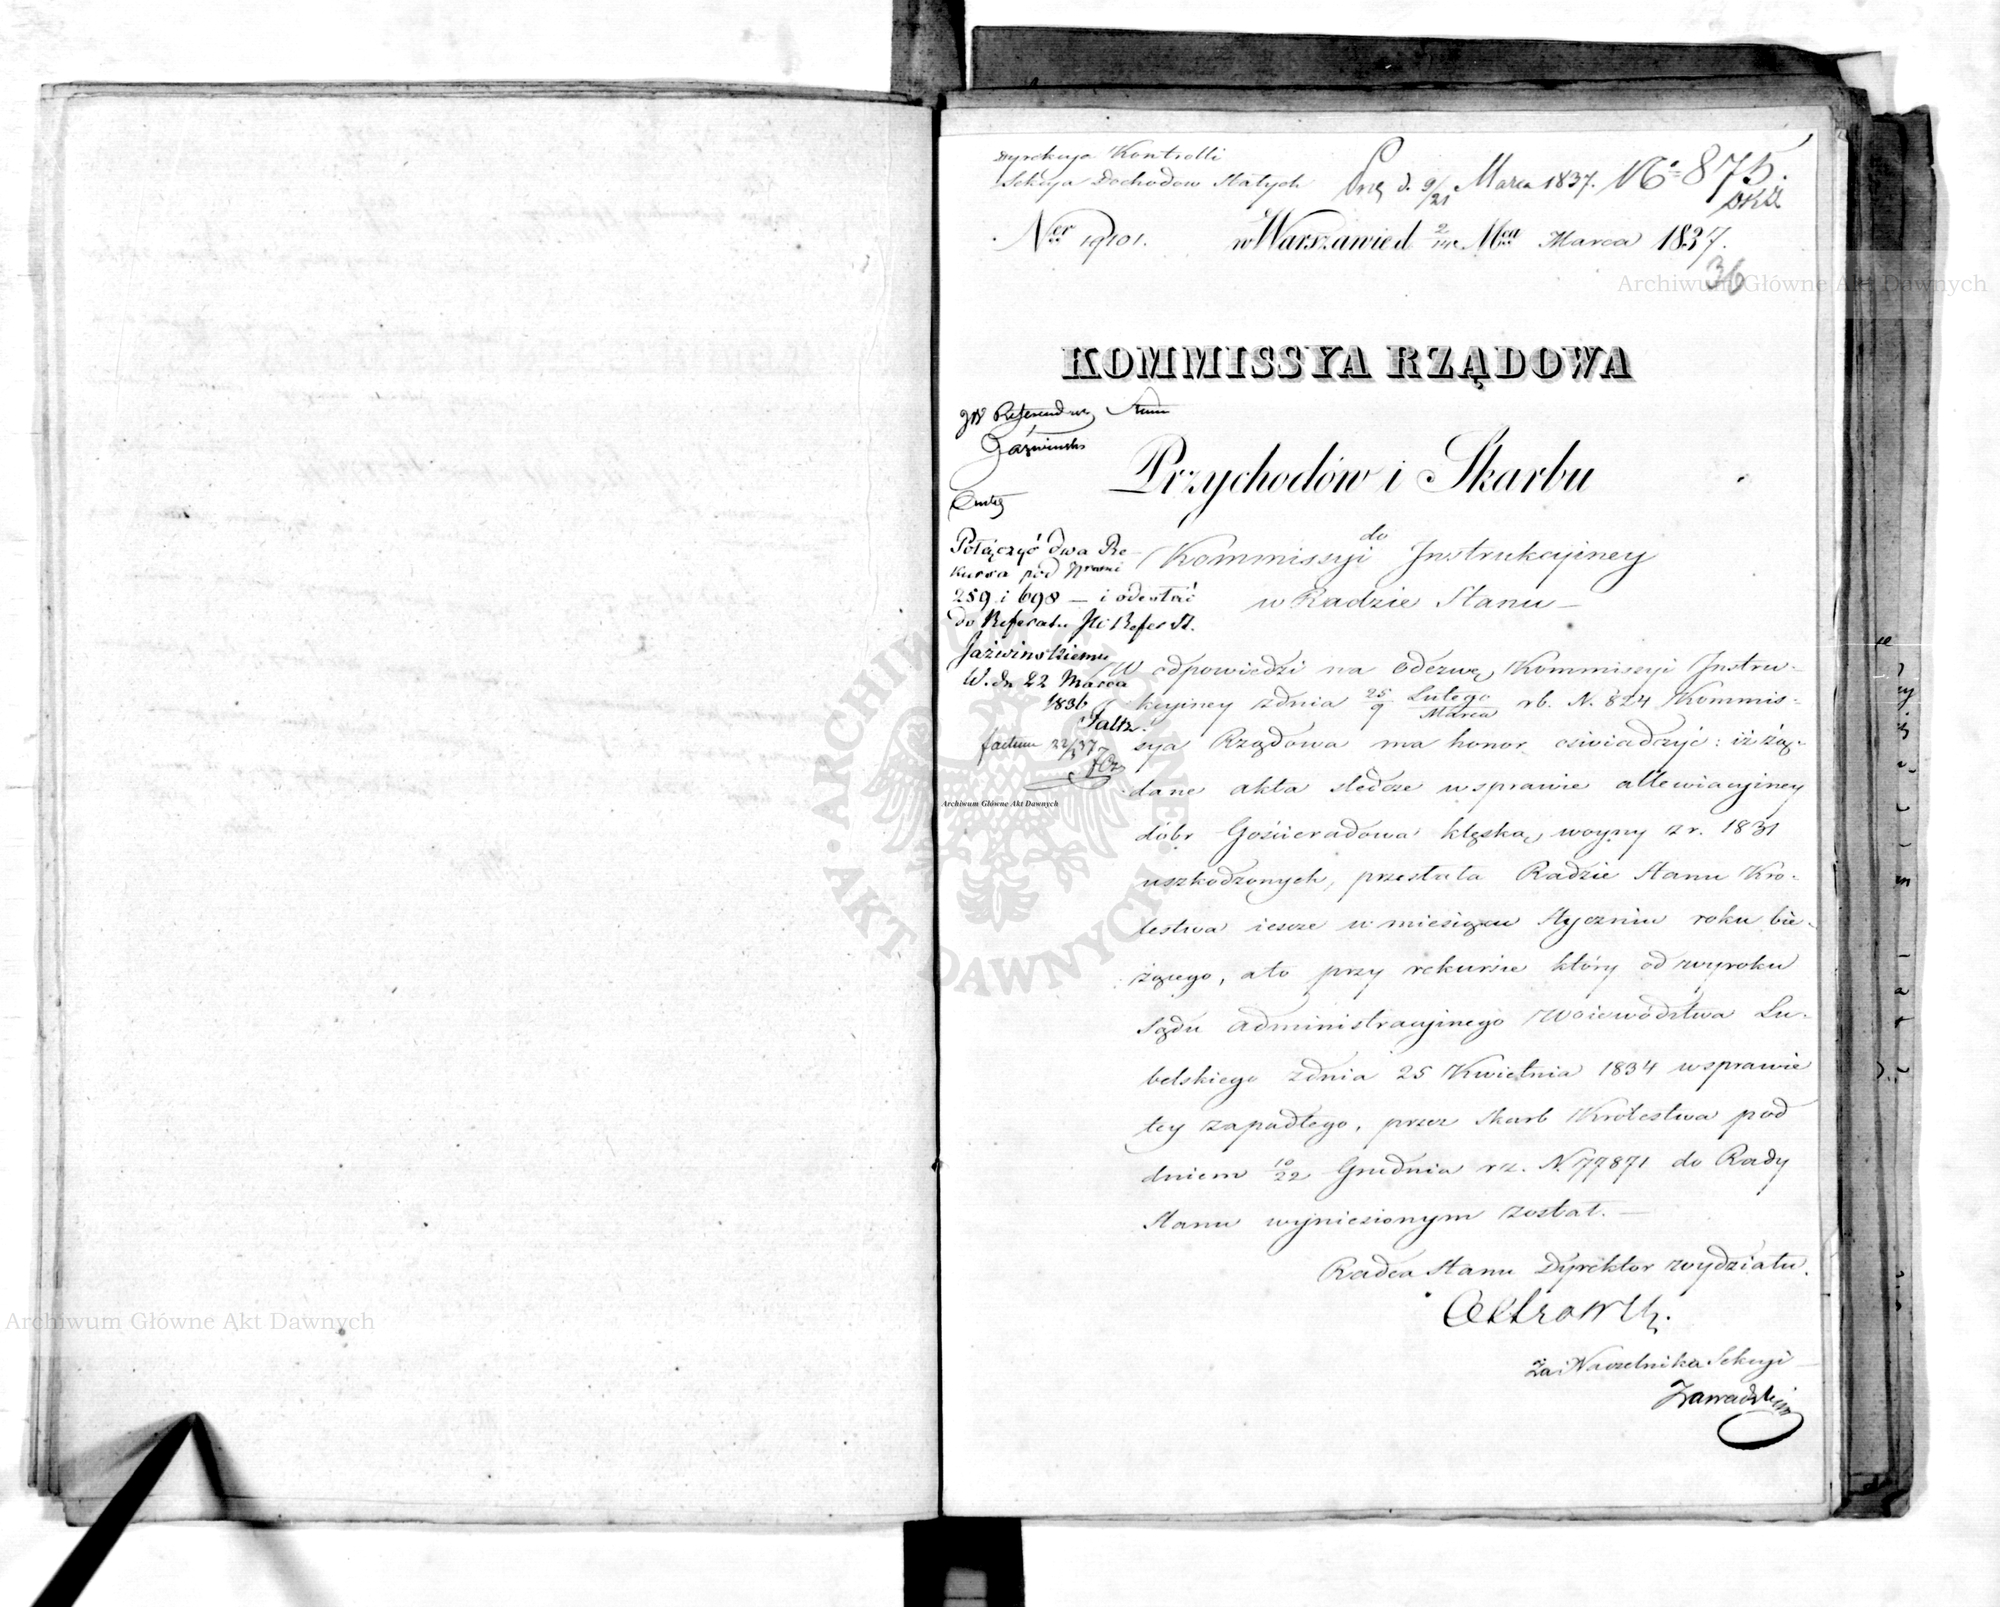 Dyrekcya Kontrolli
Sekcya Dochodow Stałych
d. 9/21 Marca 1837. No 875.
Ner 19101. w Warszawie d 2/14 Mca Marca 1837.
36
KOMMISSYA RZĄDOWA
Przychodów i Skarbu
do
Kommissyi Instrukcyiney
w Radzie Stanu —
JW Referendarz Stanu
Jaźwiński
Połączyć dwa Re-
kursa pod Nrami
259 i 698 — i odesłać
do Referatu JW Refer St.
Jaźwinskiemu
W. dn 22 Marca
1836
factum 22/3 37
W odpowiedzi na odezwę Kommissyi Instru-
kcyiney zdnia 25 Lutego / 9 Marca rb. N. 824 Kommis-
sya Rządowa ma honor oświadczyć: iż żą-
dane akta śledcze w sprawie allewiacyiney
dóbr Gościeradowa klęską woyny z r. 1831
uszkodzonych, przesłała Radzie Stanu Kró-
lestwa iescze w miesiącu Styczniu roku bie-
żącego, a to przy rekursie który od wyroku
Sądu Administracyinego Woiewództwa Lu-
belskiego zdnia 25 Kwietnia 1834 w sprawie
tey zapadłego, przez Skarb Królestwa pod
dniem 10/22 Grudnia rz. N. 77871 do Rady
Stanu wyniesionym został. —
Radca Stanu Dyrektor wydziału.
Za Naczelnika Sekcyi
Zawadzki
Archiwum Główne Akt Dawnych
Archiwum Główne Akt Dawnych
Archiwum Główne Akt Dawnych
ARCHIWUM GŁÓWNE AKT DAWNYCH